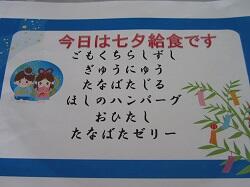 今日は七夕給食です
ごもくちらしずし
ぎゅうにゅう
たなばたじる
ほしのハンバーグ
おひたし
たなばたゼリー